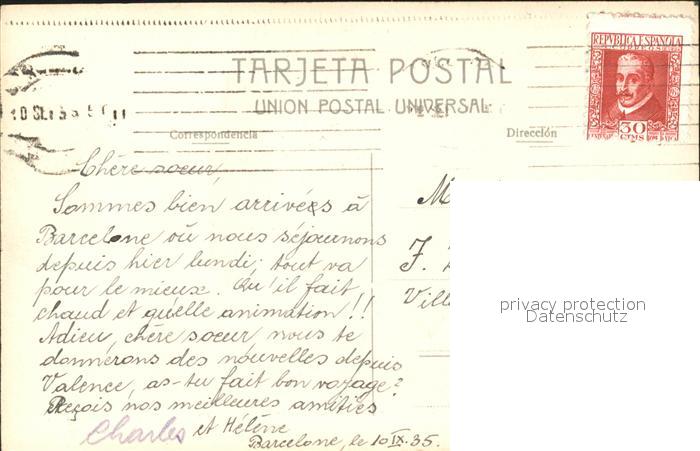 REPUBLICA ESPAÑOLA
CORREOS
30
CTMS
TARJETA POSTAL
UNION POSTAL UNIVERSAL
Correspondencia
Dirección
Chère soeur,
Sommes bien arrivés à
Barcelone où nous séjournons
depuis hier lundi; tout va
pour le mieux. Qu'il fait
chaud et quelle animation!!
Adieu, chère soeur, nous te
donnerons des nouvelles depuis
Valence, as-tu fait bon voyage?
Reçois nos meilleures amitiés
Charles et Hélène
Barcelone, le 10 IX. 35.
M
F.
Vill
privacy protection
Datenschutz